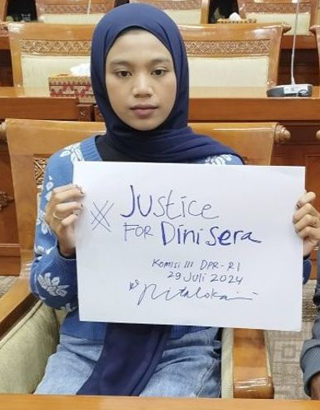 # Justice
FOR Dini sera
Komisi III DPR-RI
29 Juli 2024